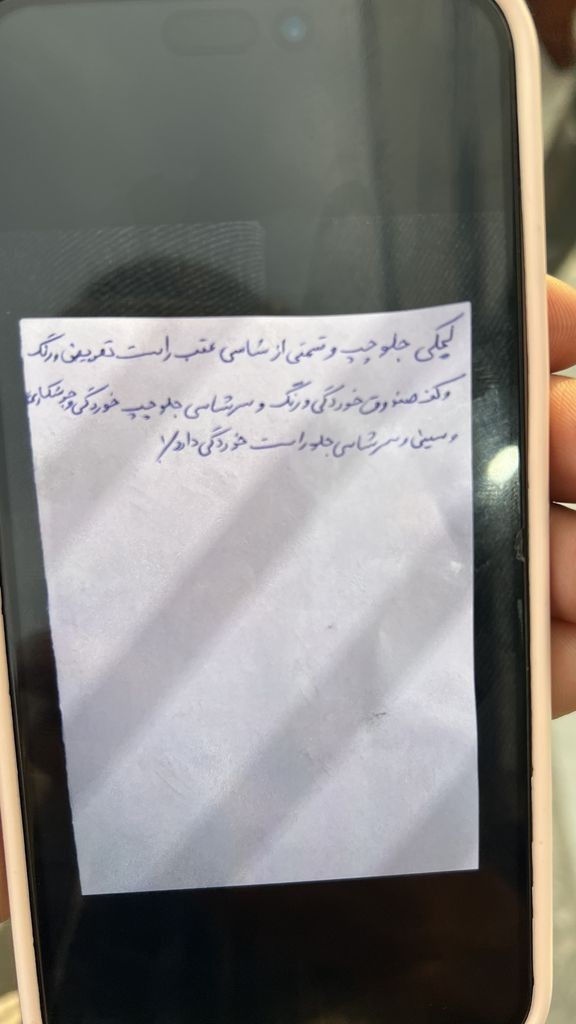 گلگی جلو چپ و قسمتی از شاسی عقب راست تعویض و رنگ
و کف صندوق خوردگی و رنگ و سرشاسی جلو چپ خوردگی و جوشکاری
و سینی و سرشاسی جلو راست خوردگی دارد/